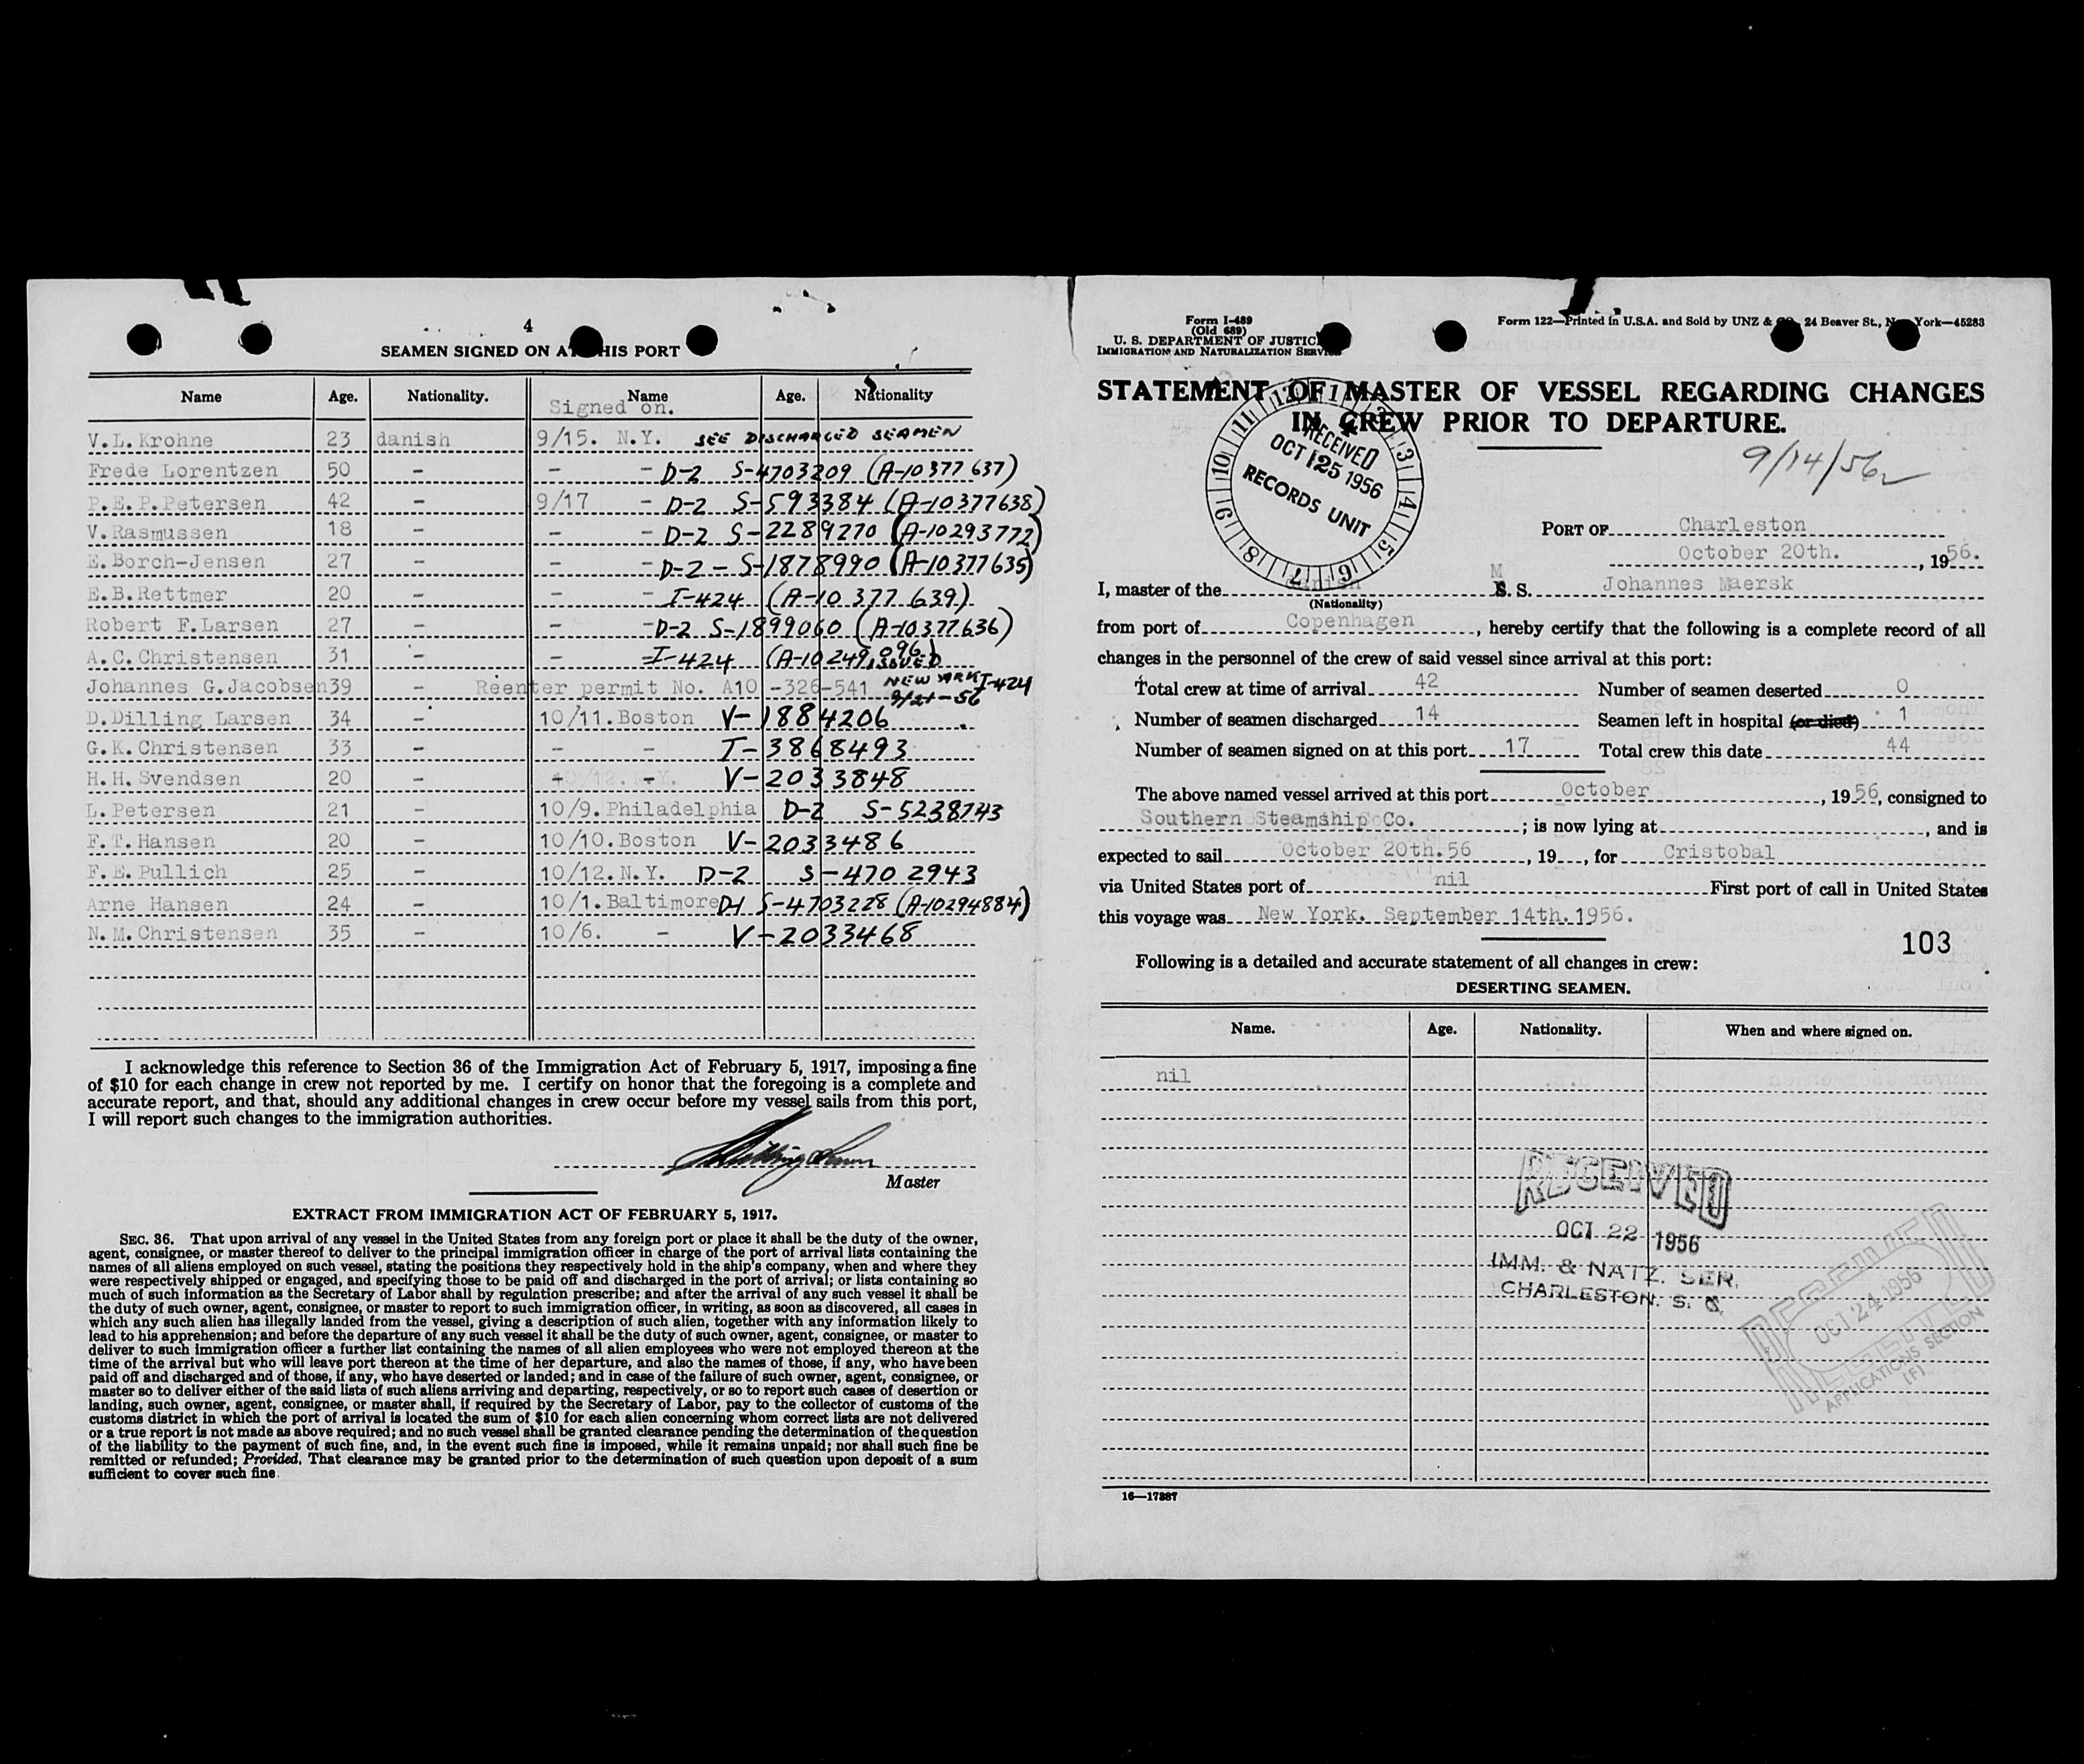 4
SEAMEN SIGNED ON AT THIS PORT
Name Age. Nationality. Name Age. Nationality
Signed on.
V.L.Krohne 23 danish 9/15. N.Y. SEE DISCHARGED SEAMEN
Frede Lorentzen 50 - - - D-2 S-4703209 (A-10377637)
P.E.P.Petersen 42 - 9/17 - D-2 S-593384 (A-10377638)
V.Rasmussen 18 - - - D-2 S-2289270 (A-10293772)
E.Borch-Jensen 27 - - - D-2 - S-1878990 (A-10377635)
E.B.Rettmer 20 - - - I-424 (A-10 377 639)
Robert F.Larsen 27 - - - D-2 S-1899060 (A-10377636)
A.C.Christensen 31 - - - I-424 (A-10 249 096)
Johannes G.Jacobsen 39 - Reenter permit No. A10 -326-541 ISSUED NEW YARK I-424 9/21-56
D.Dilling Larsen 34 - 10/11.Boston V-1884206
G.K.Christensen 33 - - - T-3868493
H.H.Svendsen 20 - - - V-2033848
L.Petersen 21 - 10/9.Philadelphia D-2 S-5238743
F.T.Hansen 20 - 10/10.Boston V-2033486
F.E.Pullich 25 - 10/12.N.Y. D-2 S-4702943
Arne Hansen 24 - 10/1.Baltimore D-1 S-4703228 (A-10294884)
N.M.Christensen 35 - 10/6. - V-2033468
I acknowledge this reference to Section 36 of the Immigration Act of February 5, 1917, imposing a fine
of $10 for each change in crew not reported by me. I certify on honor that the foregoing is a complete and
accurate report, and that, should any additional changes in crew occur before my vessel sails from this port,
I will report such changes to the immigration authorities.
Master
EXTRACT FROM IMMIGRATION ACT OF FEBRUARY 5, 1917.
SEC. 36. That upon arrival of any vessel in the United States from any foreign port or place it shall be the duty of the owner,
agent, consignee, or master thereof to deliver to the principal immigration officer in charge of the port of arrival lists containing the
names of all aliens employed on such vessel, stating the positions they respectively hold in the ship's company, when and where they
were respectively shipped or engaged, and specifying those to be paid off and discharged in the port of arrival; or lists containing so
much of such information as the Secretary of Labor shall by regulation prescribe; and after the arrival of any such vessel it shall be
the duty of such owner, agent, consignee, or master to report to such immigration officer, in writing, as soon as discovered, all cases in
which any such alien has illegally landed from the vessel, giving a description of such alien, together with any information likely to
lead to his apprehension; and before the departure of any such vessel it shall be the duty of such owner, agent, consignee, or master to
deliver to such immigration officer a further list containing the names of all alien employees who were not employed thereon at the
time of the arrival but who will leave port thereon at the time of her departure, and also the names of those, if any, who have been
paid off and discharged and of those, if any, who have deserted or landed; and in case of the failure of such owner, agent, consignee, or
master so to deliver either of the said lists of such aliens arriving and departing, respectively, or so to report such cases of desertion or
landing, such owner, agent, consignee, or master shall, if required by the Secretary of Labor, pay to the collector of customs of the
customs district in which the port of arrival is located the sum of $10 for each alien concerning whom correct lists are not delivered
or a true report is not made as above required; and no such vessel shall be granted clearance pending the determination of the question
of the liability to the payment of such fine, and, in the event such fine is imposed, while it remains unpaid; nor shall such fine be
remitted or refunded; Provided, That clearance may be granted prior to the determination of such question upon deposit of a sum
sufficient to cover such fine.
Form I-489
(Old 689)
U. S. DEPARTMENT OF JUSTICE
IMMIGRATION AND NATURALIZATION SERVICE
Form 122—Printed in U.S.A. and Sold by UNZ & CO. 24 Beaver St., New York—45283
STATEMENT OF MASTER OF VESSEL REGARDING CHANGES
IN CREW PRIOR TO DEPARTURE.
12 1 2 3 4 5 6 7 8 9 10 11
RECEIVED
OCT 25 1956
RECORDS UNIT
9/14/56
PORT OF Charleston
October 20th. , 1956.
I, master of the danish M S. S. Johannes Maersk
(Nationality)
from port of Copenhagen , hereby certify that the following is a complete record of all
changes in the personnel of the crew of said vessel since arrival at this port:
Total crew at time of arrival 42 Number of seamen deserted 0
Number of seamen discharged 14 Seamen left in hospital (or died) 1
Number of seamen signed on at this port 17 Total crew this date 44
The above named vessel arrived at this port October , 1956, consigned to
Southern Steamship Co. ; is now lying at , and is
expected to sail October 20th.56 , 19 , for Cristobal
via United States port of nil First port of call in United States
this voyage was New York. September 14th.1956.
103
Following is a detailed and accurate statement of all changes in crew:
DESERTING SEAMEN.
Name. Age. Nationality. When and where signed on.
nil
RECEIVED
OCT 22 1956
IMM. & NATZ. SER.
CHARLESTON. S. C.
RECEIVED
OCT 24 1956
APPLICATIONS SECTION
(F)
16—17387